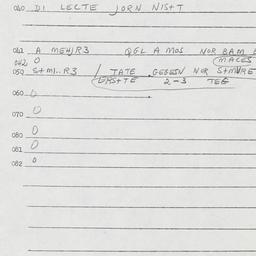 040 DI LECTE JORN NIS+T
041 A MEHJR3 QGL A MOS NOR BAM
042 O MACES
050 S+MI..R3 / TATE GEGESN NOR S+MVRE
ERS+TE 2-3 TEG
060 O
070 O
080 O
081 O
082 O